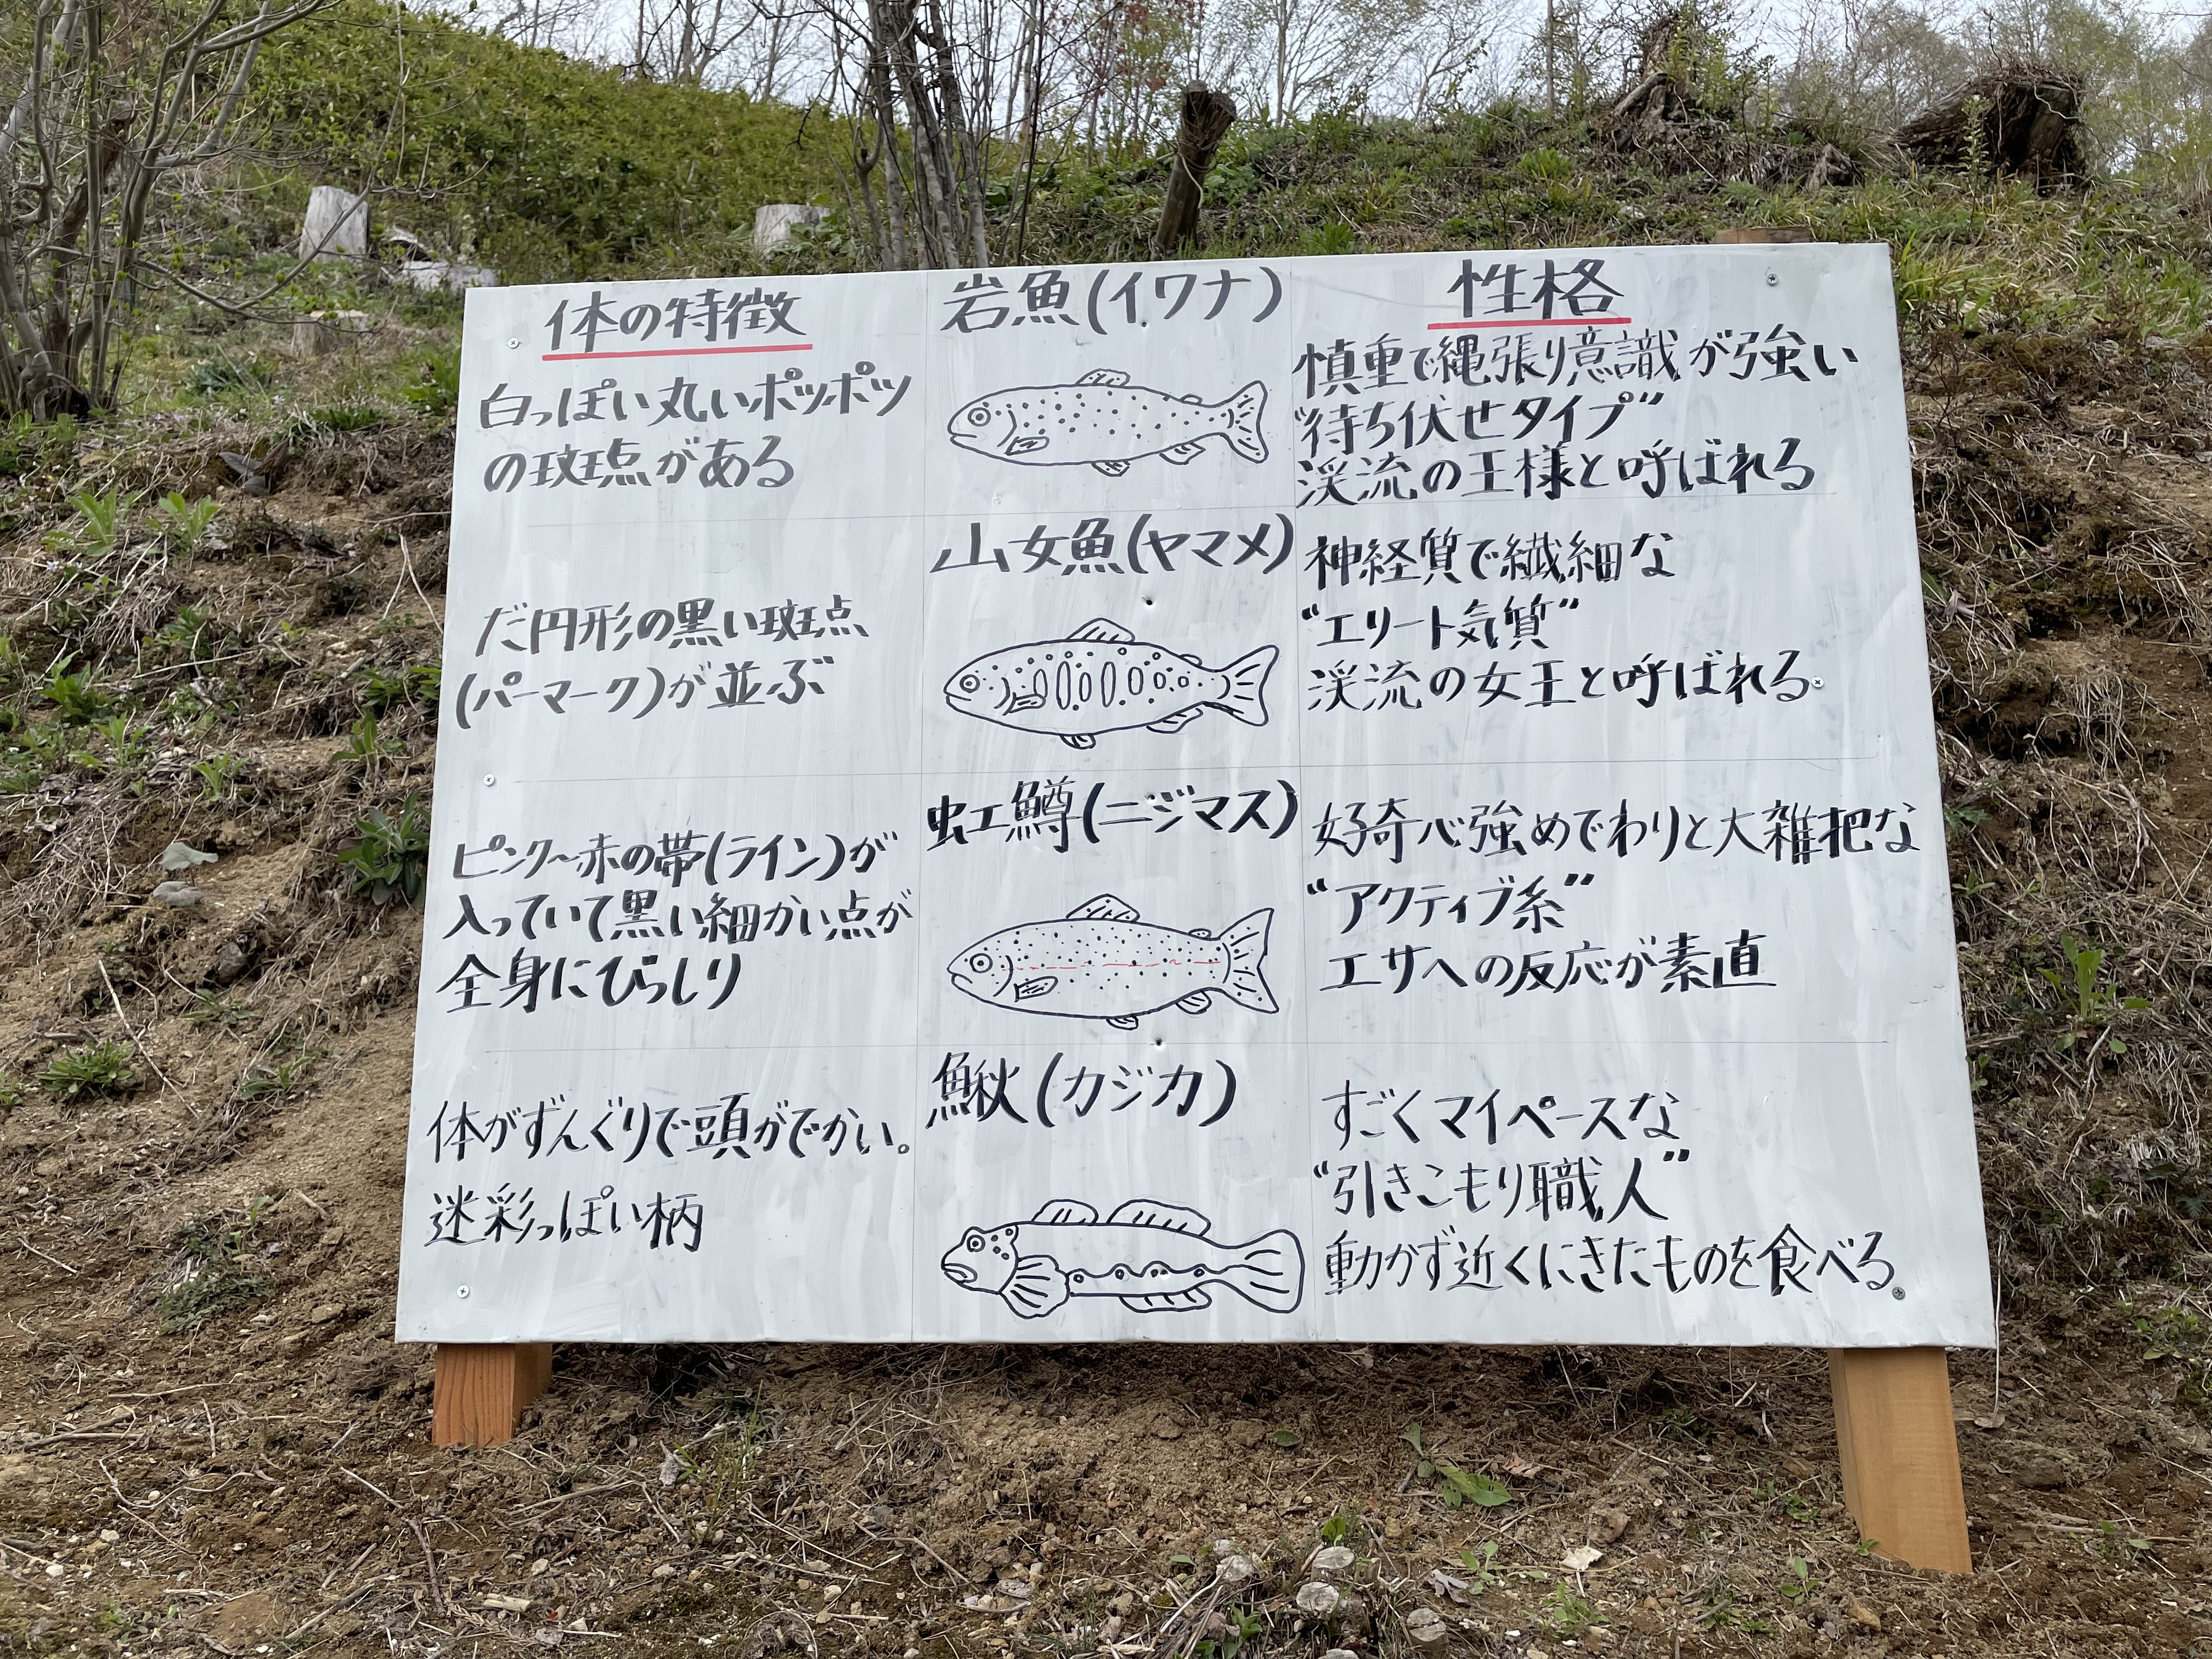 体の特徴
岩魚(イワナ)
性格
白っぽい丸いポツポツ
の斑点がある
慎重で縄張り意識が強い
"待ち伏せタイプ"
渓流の王様と呼ばれる
山女魚(ヤマメ)
だ円形の黒い斑点
(パーマーク)が並ぶ
神経質で繊細な
"エリート気質"
渓流の女王と呼ばれる
虹鱒(ニジマス)
ピンク〜赤の帯(ライン)が
入っていて黒い細かい点が
全身にびっしり
好奇心強めでわりと大雑把な
"アクティブ系"
エサへの反応が素直
鰍(カジカ)
体がずんぐりで頭がでかい。
迷彩っぽい柄
すごくマイペースな
"引きこもり職人"
動かず近くにきたものを食べる。